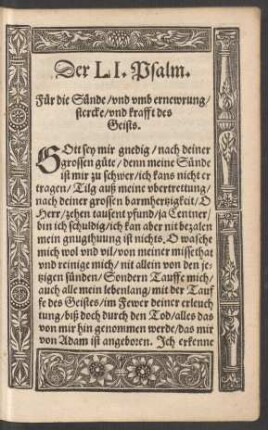 Der LI. Psalm.
Für die Sünde/vnd vmb ernewrung/
stercke/vnd krafft des
Geists.
GOtt sey mir gnedig / nach deiner
grossen güte / denn meine Sünde
ist mir zu schwer/ich kans nicht er
tragen/Tilg auß meine vbertrettung/
nach deiner grossen barmhertzigkeit/O
Herr/zehen tausent pfund/ja Centner/
bin ich schuldig/ich kan aber nit bezalen
mein gnugthuung ist nichts. O wasche
mich wol vnd vil/von meiner missethat
vnd reinige mich/nit allein von den je-
tzigen sünden/Sondern Tauffe mich/
auch alle mein lebenlang/mit der Tauf
fe des Geistes/im Fewer deiner erleuch
tung/biß doch durch den Tod/alles das
von mir hin genommen werde/das mir
von Adam ist angeboren. Ich erkenne